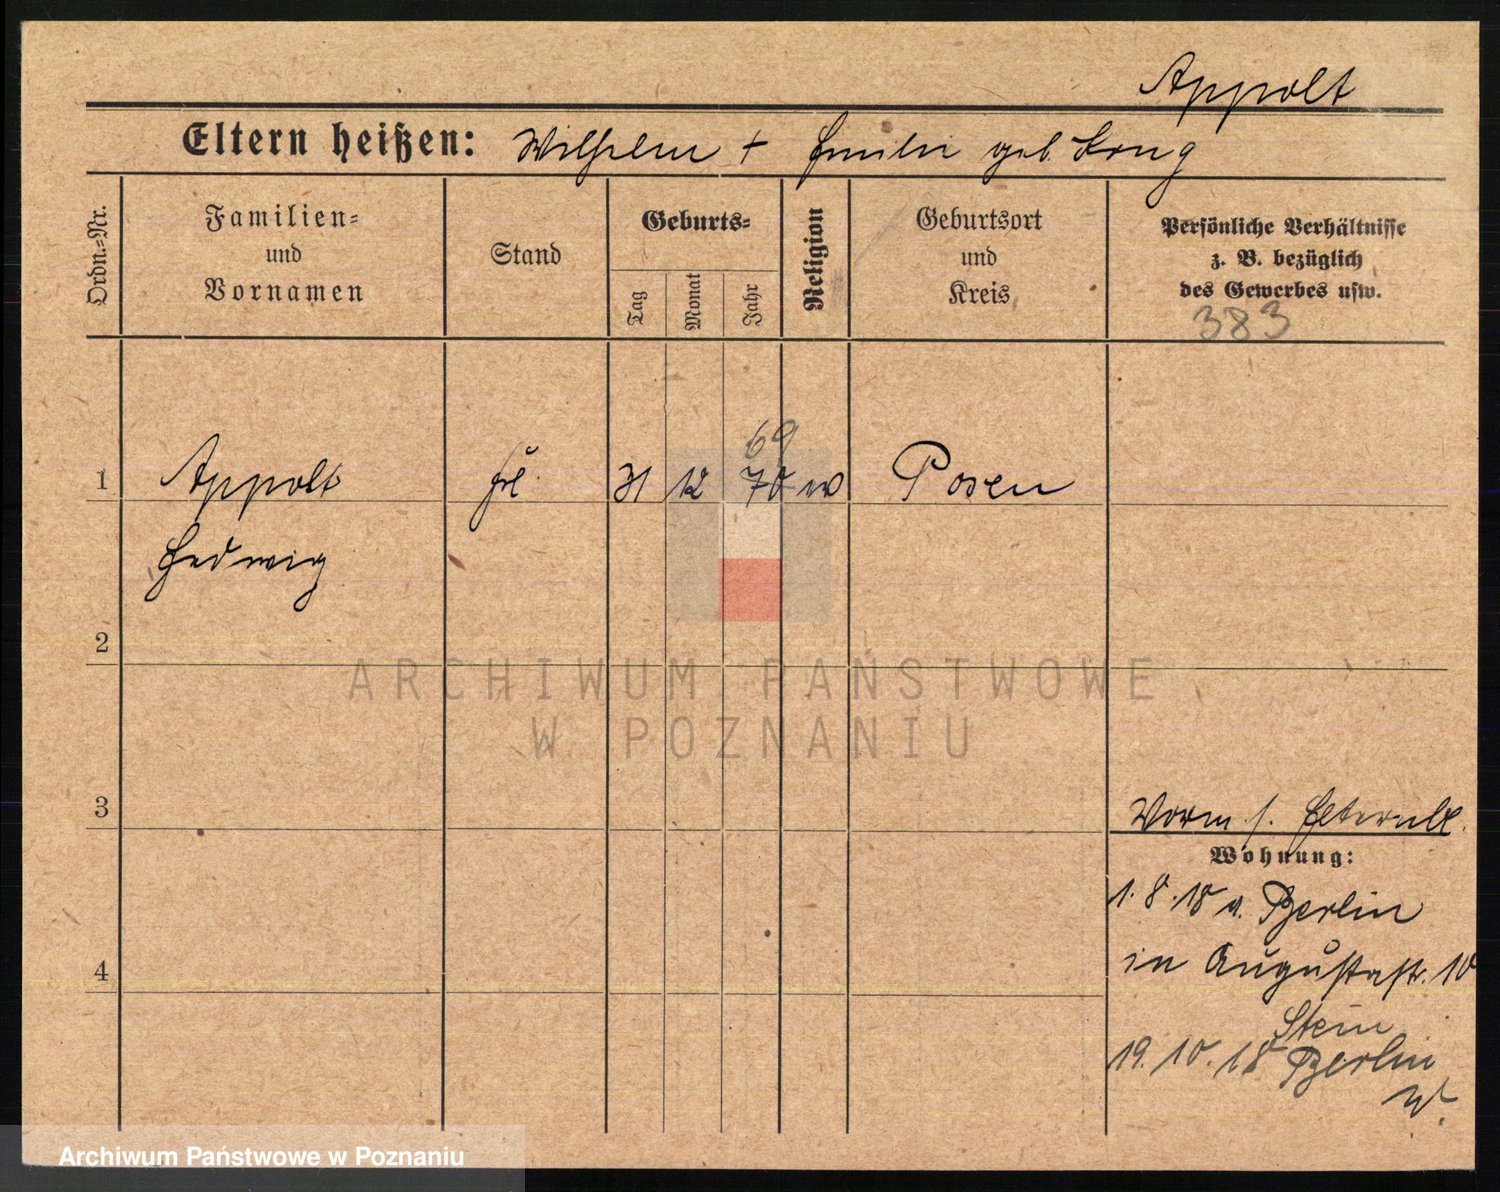 Appolt
Eltern heißen: Wilhelm + Emilie geb. Krug
Ordn.-Nr.
Familien-
und
Vornamen
Stand
Geburts-
Tag
Monat
Jahr
Religion
Geburtsort
und
Kreis
Persönliche Verhältnisse
z. B. bezüglich
des Gewerbes usw.
383
69
1 Appolt Frl. 31 12 70 ev Posen
Hedwig
2
ARCHIWUM PAŃSTWOWE
W POZNANIU
3
Vorm s.
Wohnung:
1.8.18 v. Berlin
in Augustastr. 10
4
Stein
19.10.18 Berlin
Archiwum Państwowe w Poznaniu